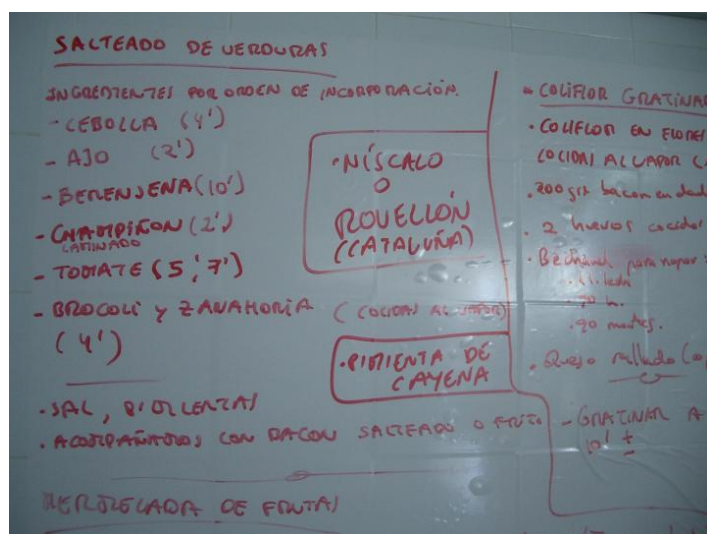 SALTEADO DE VERDURAS
INGREDIENTES POR ORDEN DE INCORPORACIÓN.
- CEBOLLA (4')
- AJO (2')
- BERENJENA (10')
- CHAMPIÑON (2')
LAMINADO
- TOMATE (5', 7')
- BROCOLI Y ZANAHORIA (COCIDAS AL VAPOR)
(4')
· SAL, PIMIENTAS
· ACOMPAÑADOS CON BACON SALTEADO O FRITO
MERMELADA DE FRUTAS
· NÍSCALO
O
ROVELLÓN
(CATALUÑA)
· PIMIENTA DE
CAYENA
- COLIFLOR GRATINA
· COLIFLOR EN FLORE
COCIDAS AL VAPOR
· 200 grs bacon en dad
· 2 huevos cocidos
· Bechamel para napar
· Queso rallado
- GRATINAR A
10' ±